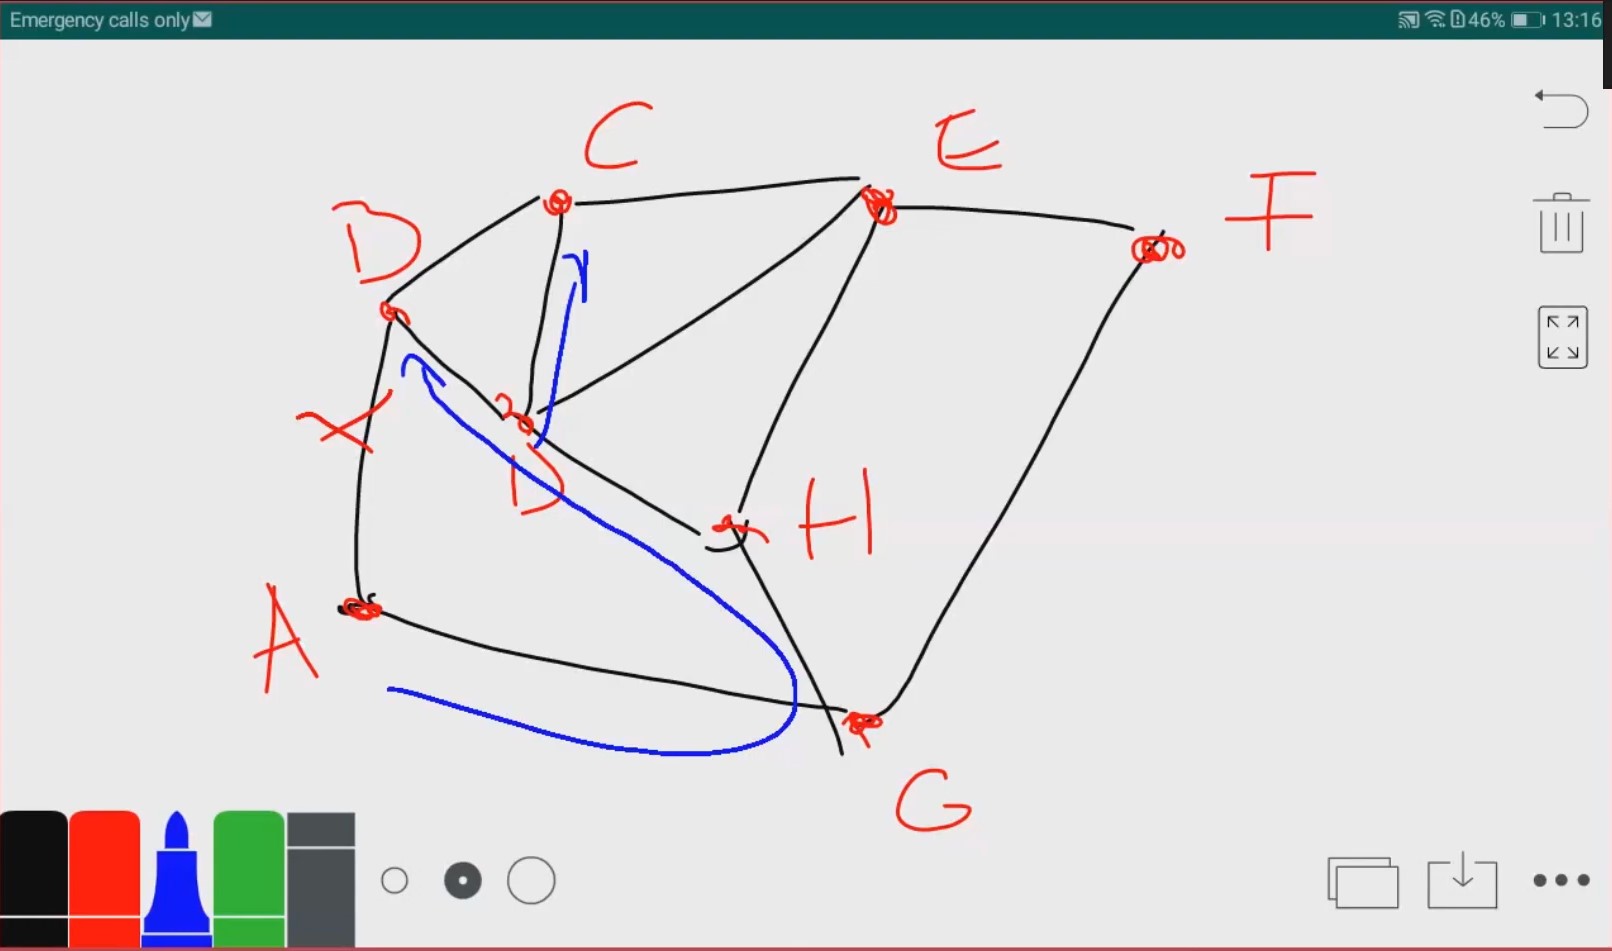 Emergency calls only 46% 13:16
C
E
D
F
X
D
H
A
G